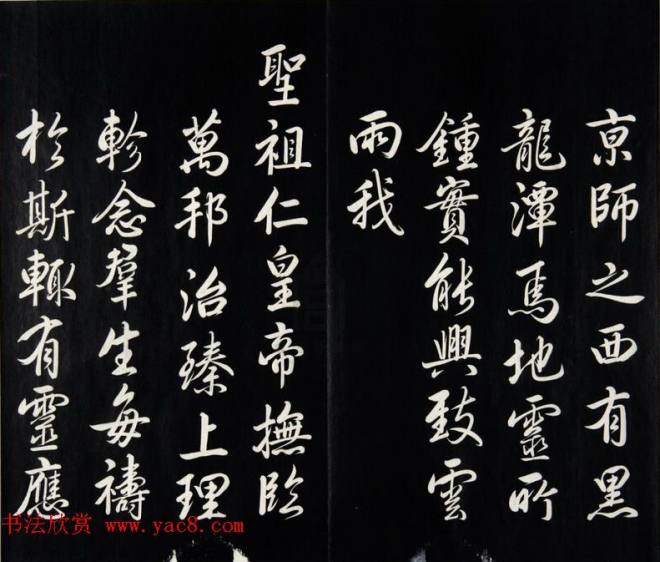 京師之西有黑
龍潭焉地靈所
鍾實能興致雲
雨我
聖祖仁皇帝撫臨
萬邦治臻上理
軫念羣生每禱
於斯輒有靈應
书法欣赏 www.yac8.com